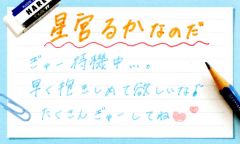 星宮るかなのだ
ぎゅー待機中…。
早く抱きしめて欲しいな♪
たくさんぎゅーしてね♥♥